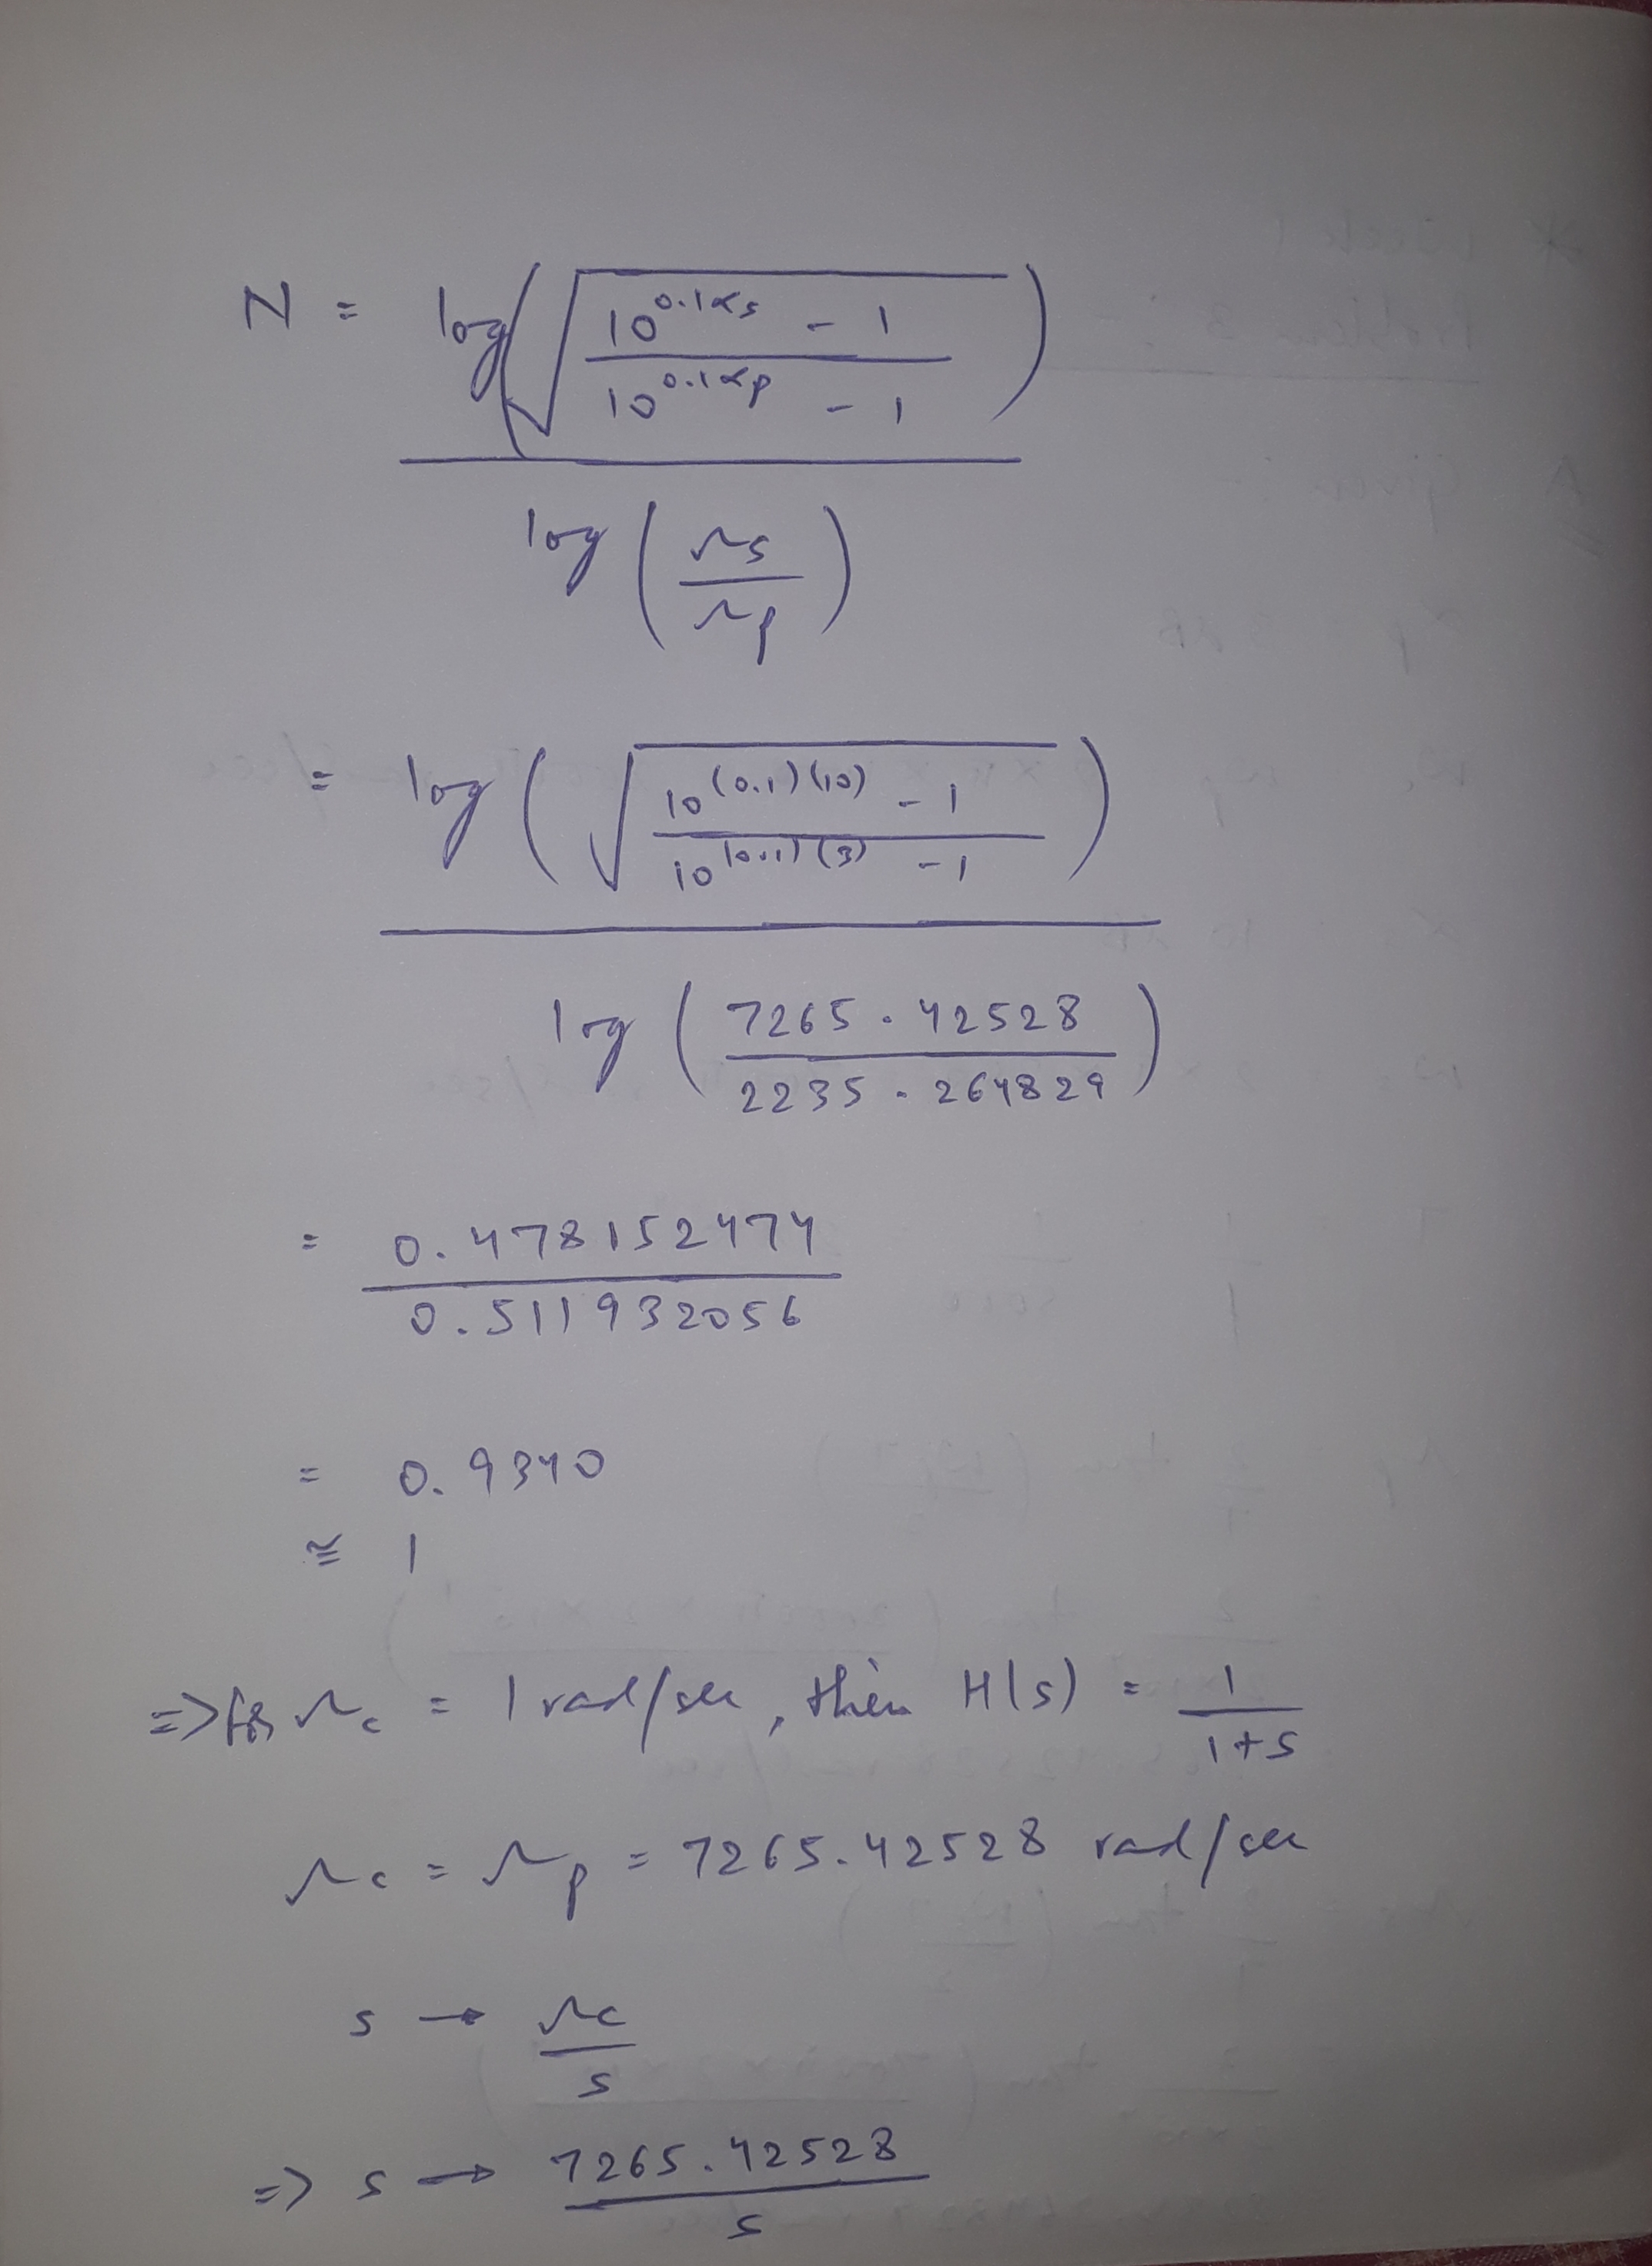 N = log(√((10^0.1αs - 1)/(10^0.1αp - 1))) / log(Ωs/Ωp)
= log(√((10^(0.1)(10) - 1)/(10^(0.1)(3) - 1))) / log(7265.42528/2235.264829)
= 0.478152474/0.511932056
= 0.9340
≅ 1
=> for Ωc = 1 rad/sec, then H(s) = 1/(1+s)
Ωc = Ωp = 7265.42528 rad/sec
s → Ωc/s
=> s → 7265.42528/s